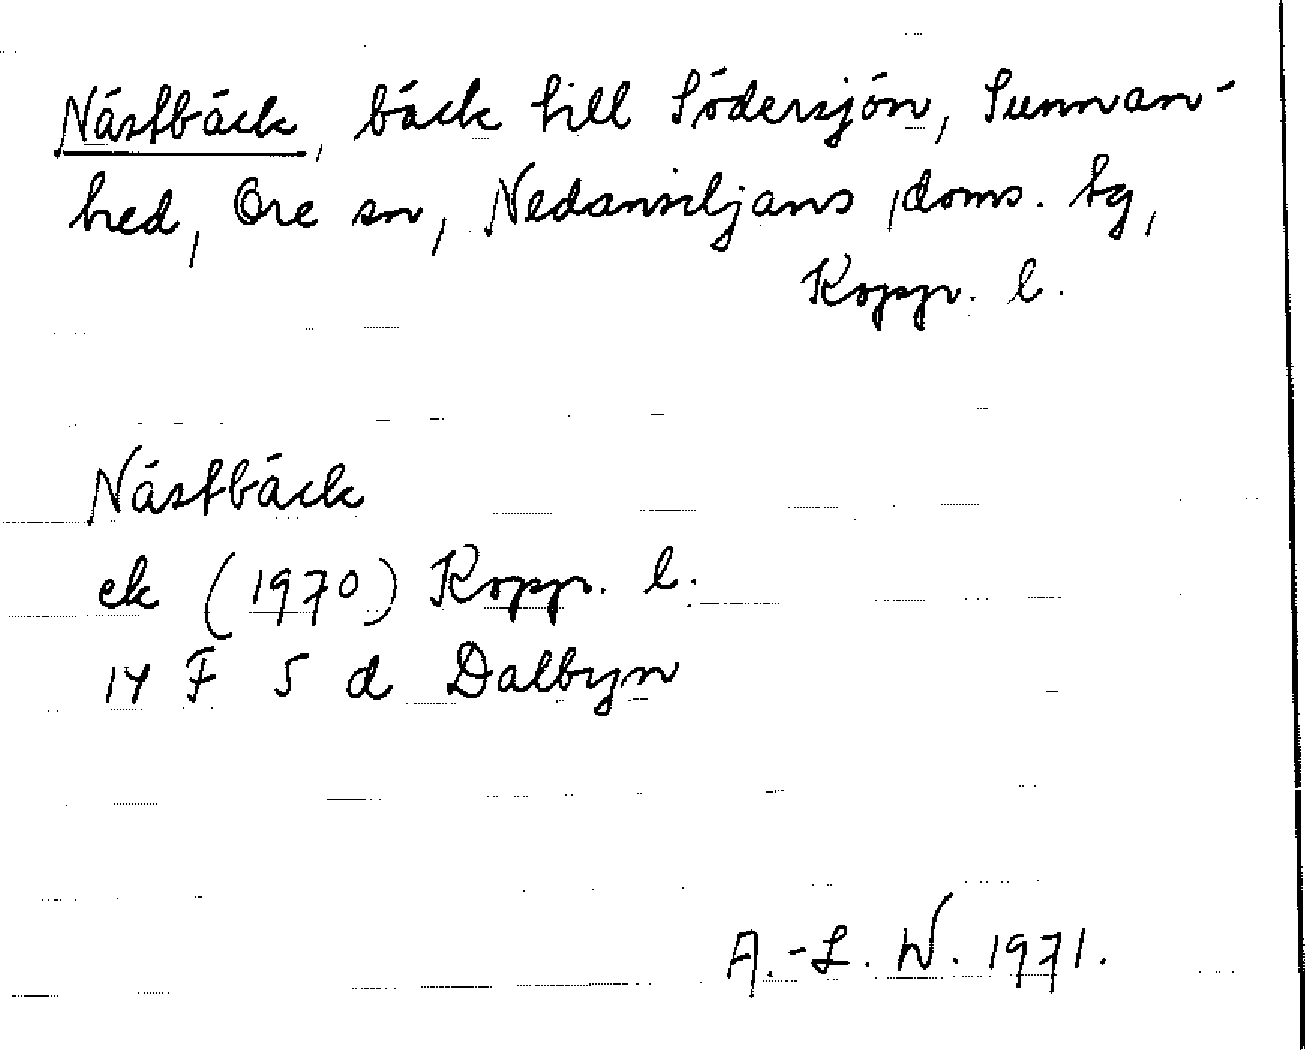 Nästbäck, bäck till Södersjön, Sunnan-
hed, Ore sn, Nedansiljans doms. tg,
Kopp. l.
Nästbäck
ek (1970) Kopp. l.
14 F 5 d Dalbyn
A.-L. W. 1971.